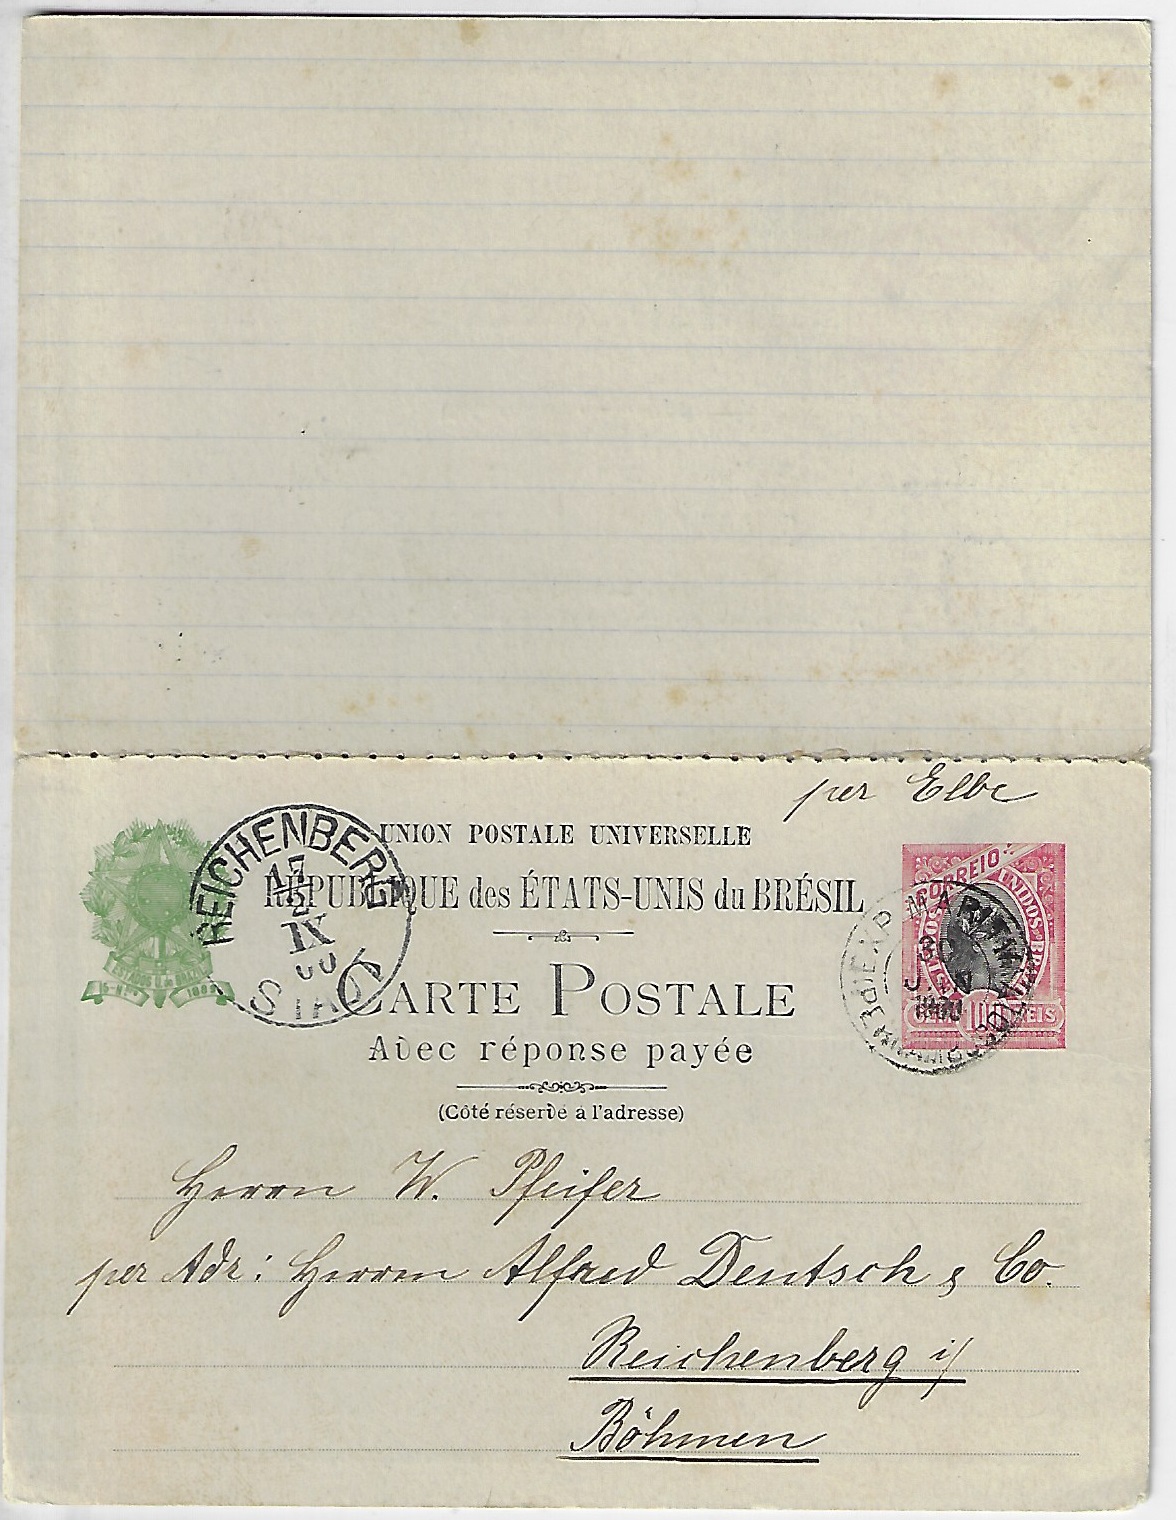 per Elbe
UNION POSTALE UNIVERSELLE
RÉPUBLIQUE des ÉTATS-UNIS du BRÉSIL
CARTE POSTALE
Avec réponse payée
(Côté réservé à l'adresse)
REICHENBERG
17
IX
00
STADT
CORREIO
UNIDOS
REIS
EXP MARITIMA
30
1900
PERNAMBUCO
Herrn W. Pfeifer
per Adr: Herren Alfred Deutsch & Co.
Reichenberg i/
Böhmen